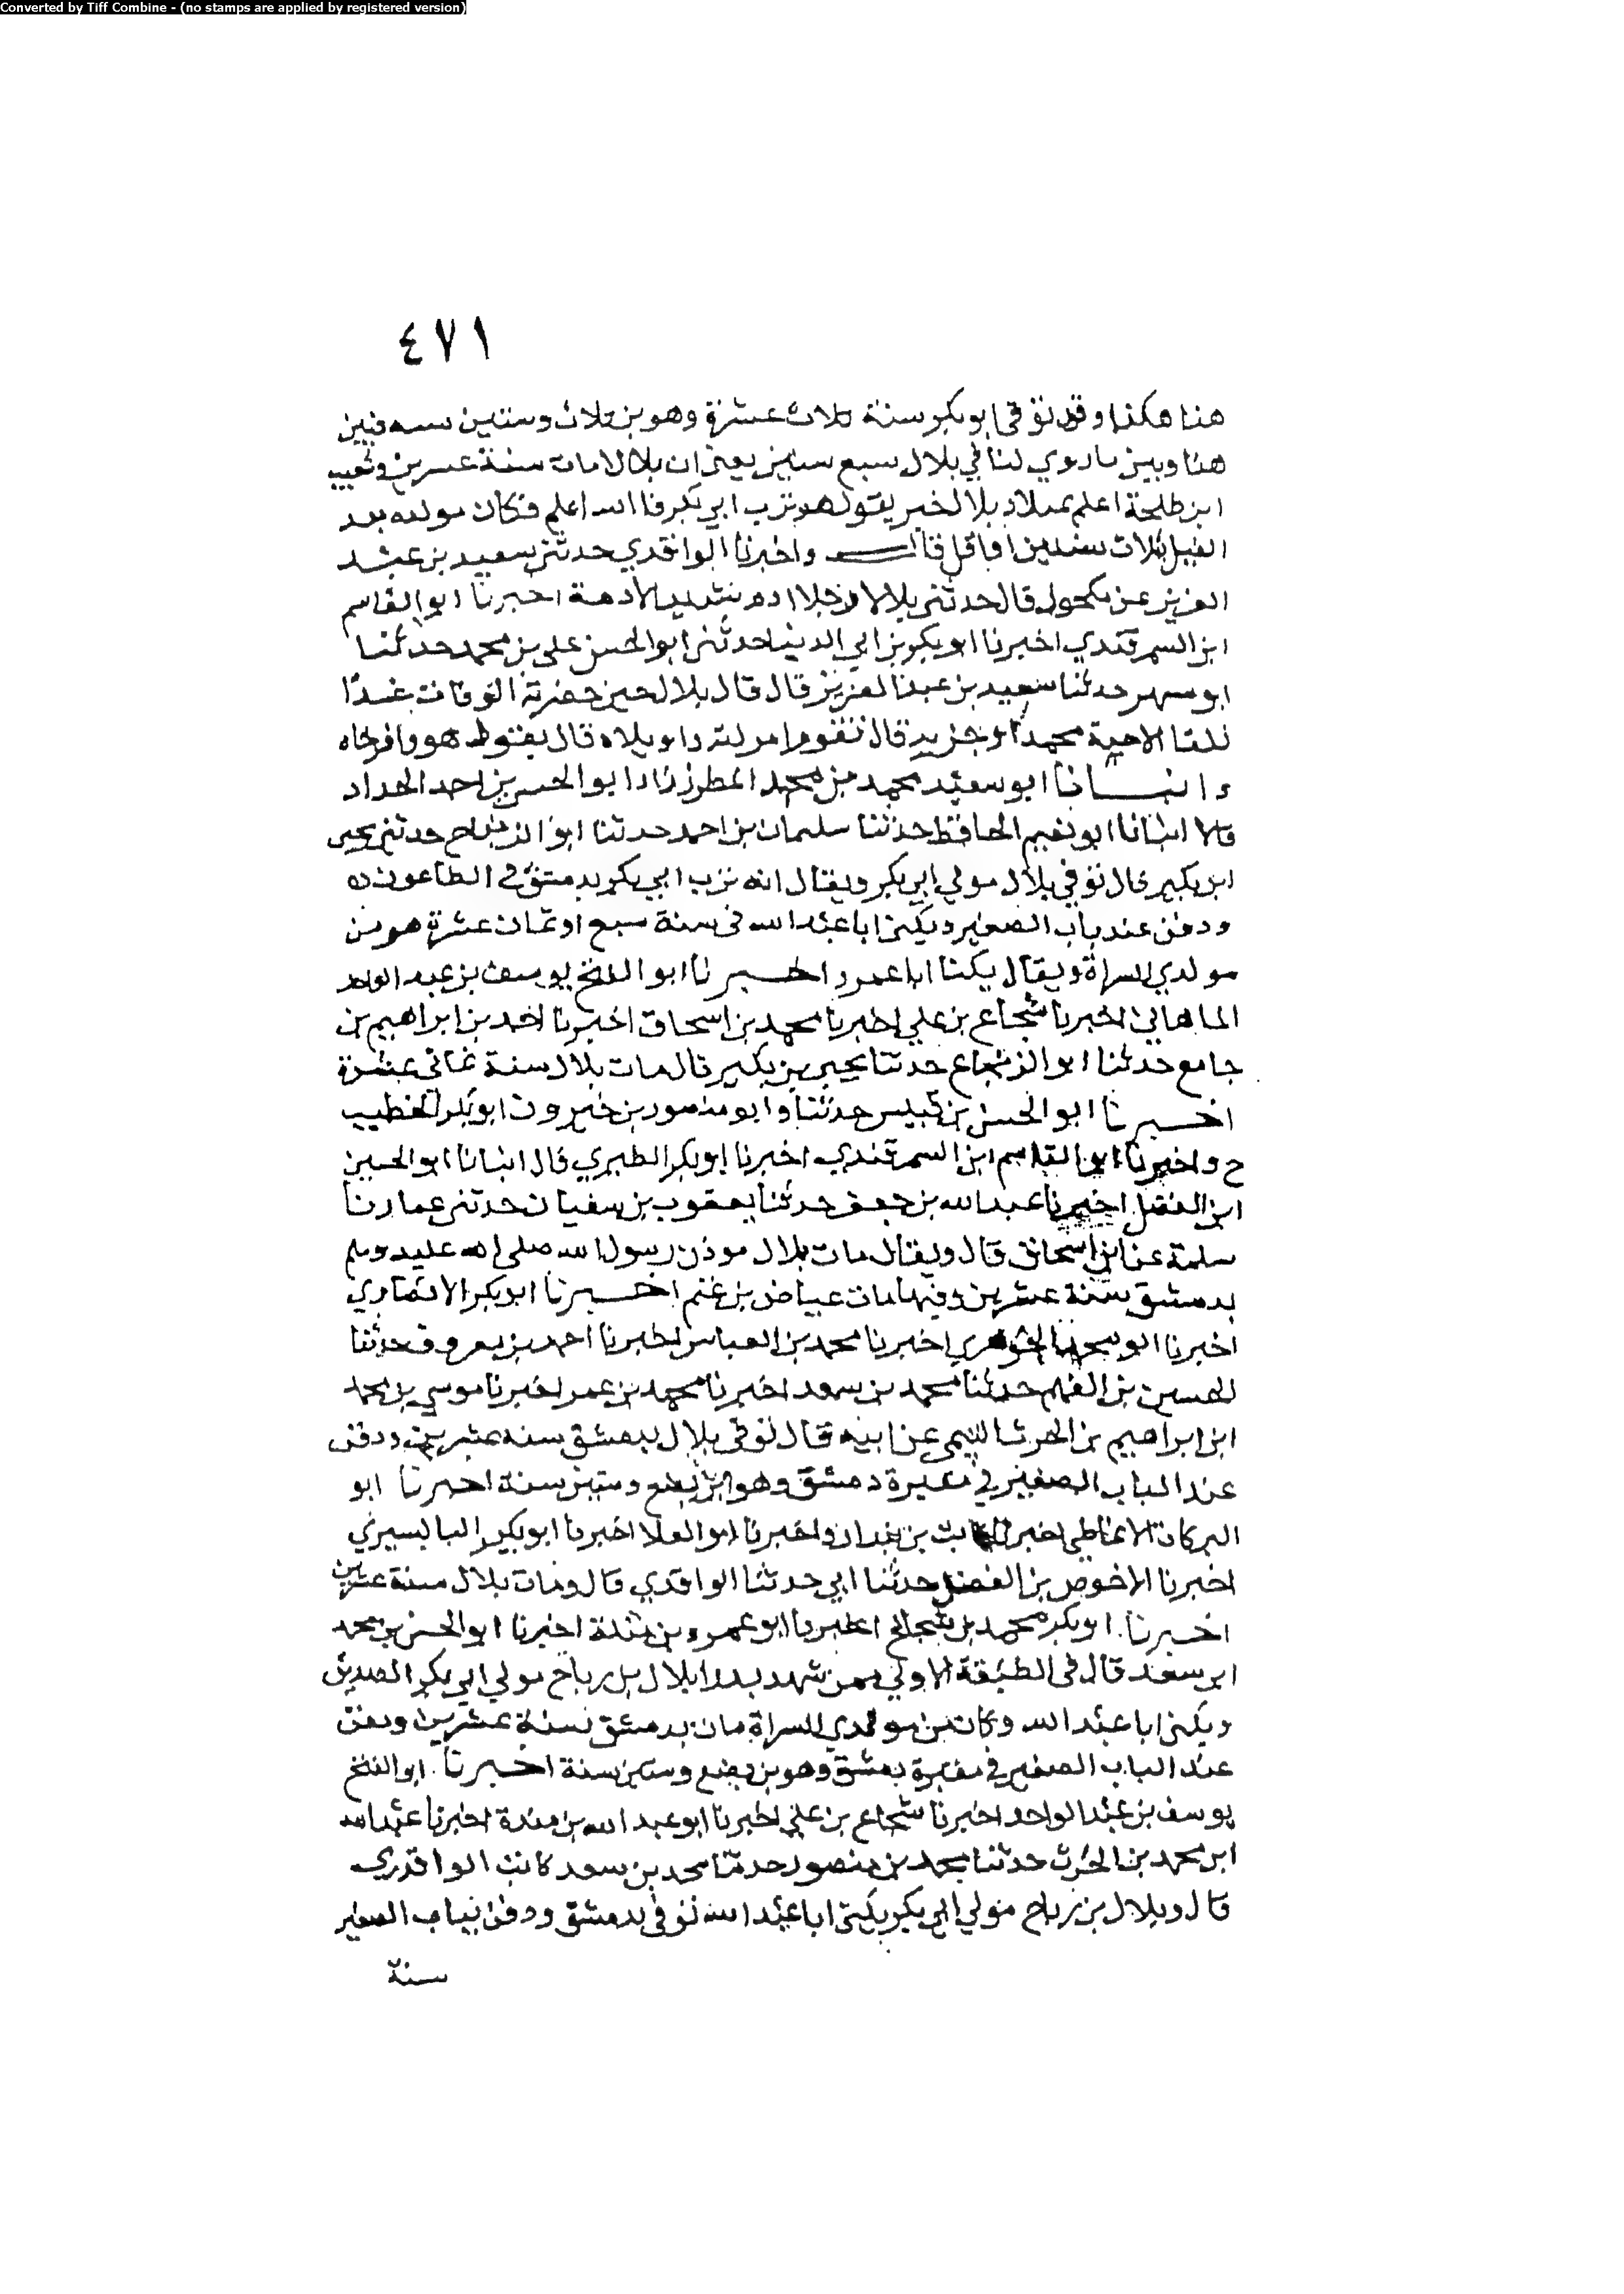 Converted by Tiff Combine - (no stamps are applied by registered version)
٤٧١
هذا هكذا وقد توفي ابو بكر سنة ثلاث عشرة وهو بن ثلاث وستين سنه فبين
هذا وبين ما روي لنا في بلال سبع سنين يعني ان بلالا مات سنة عشرين وشعيب
ابن طلحة اعلم بميلاد بلال حين يقول هو ترب ابي بكر فالله اعلم فكان مولده بعد
الفيل بثلاث سنين او اقل قال واخبرنا الواقدي حدثني سعيد بن عبد
العزيز عن مكحول قال حدثني بلالا رجلا ادم شديد الادمة اخبرنا ابو القاسم
ابن السمرقندي اخبرنا ابو بكر بن ابي الدنيا حدثني ابو الحسن علي بن محمد حدثنا
ابو مسهر حدثنا سعيد بن عبد العزيز قال قال بلال حين حضرته الوفات غدًا
نلقا الاحبة محمدا وحزبه قال تقوم امرلته واويلاه قال يقول هو وافرحاه
وانبانا ابو سعيد محمد بن محمد المطرز زاد ابو الحسن بن احمد الحداد
قالا انبانا ابو نعيم الحافظ حدثنا سليمان بن احمد حدثنا ابو الزنباع حدثني يحيى
ابن بكير قال توفي بلال مولي ابي بكر ويقال انه ترب ابي بكر بدمشق في الطاعون
ودفن عند باب الصغير ويكنى ابا عبد الله في سنة سبع او ثمان عشرة هو من
مولدي السراة ويقال يكنا ابا عمرو اخبرنا ابو الفتح يوسف بن عبد الواحد
الماهاني اخبرنا شجاع بن علي اخبرنا محمد بن اسحاق اخبرنا احمد بن ابراهيم بن
جامع حدثنا ابو الزنباع حدثنا يحيى بن بكير قال مات بلال سنة ثماني عشرة
اخبرنا ابو الحسن بن قبيس حدثنا وابو منصور بن خيرون ابو بكر الخطيب
ح واخبرنا ابو القاسم ابن السمرقندي اخبرنا ابو بكر الطبري قال انبانا ابو الحسين
ابن الفضل اخبرنا عبد الله بن جعفر حدثنا يعقوب بن سفيان حدثني عمارنا
سلمة عن ابن اسحاق قال ويقال مات بلال موذن رسول الله صلى الله عليه وسلم
بدمشق سنة عشرين وفيها مات عياض بن غنم اخبرنا ابو بكر الانصاري
اخبرنا ابو محمد الجوهري اخبرنا محمد بن العباس اخبرنا احمد بن معروف حدثنا
الحسين بن الفهم حدثنا محمد بن سعد اخبرنا محمد بن عمر اخبرنا موسي بن محمد
ابن ابراهيم بن الحرث التيمي عن ابيه قال توفي بلال بدمشق سنه عشرين ودفن
عند الباب الصغير في مقبرة دمشق وهو ابن بضع وستين سنة اخبرنا ابو
البركات الانماطي اخبرنا ثابت بن بندار واخبرنا ابو العلا اخبرنا ابو بكر البابسيري
اخبرنا الاخوص بن الفضل حدثنا ابي حدثنا الواقدي قال ومات بلال سنة عشرين
اخبرنا ابو بكر محمد بن شجاع اخبرنا ابو عمرو بن مندة اخبرنا ابو الحسن بن محمد
ابن سعد قال في الطبقة الاولي ممن شهد بدرا بلال بن رباح مولي ابي بكر الصديق
ويكنى ابا عبد الله وكان من مولدي السراة مات بدمشق سنة عشرين ودفن
عند الباب الصغير في مقبرة دمشق وهو بن بضع وستين سنة اخبرنا ابو الفتح
يوسف بن عبد الواحد اخبرنا شجاع بن علي اخبرنا ابو عبد الله بن مندة اخبرنا عبد الله
ابن محمد بن الحرث حدثنا محمد بن منصور حدثنا محمد بن سعد كاتب الواقدي
قال وبلال بن رباح مولي ابي بكر يكنى ابا عبد الله توفي بدمشق ودفن بباب الصغير
سنة